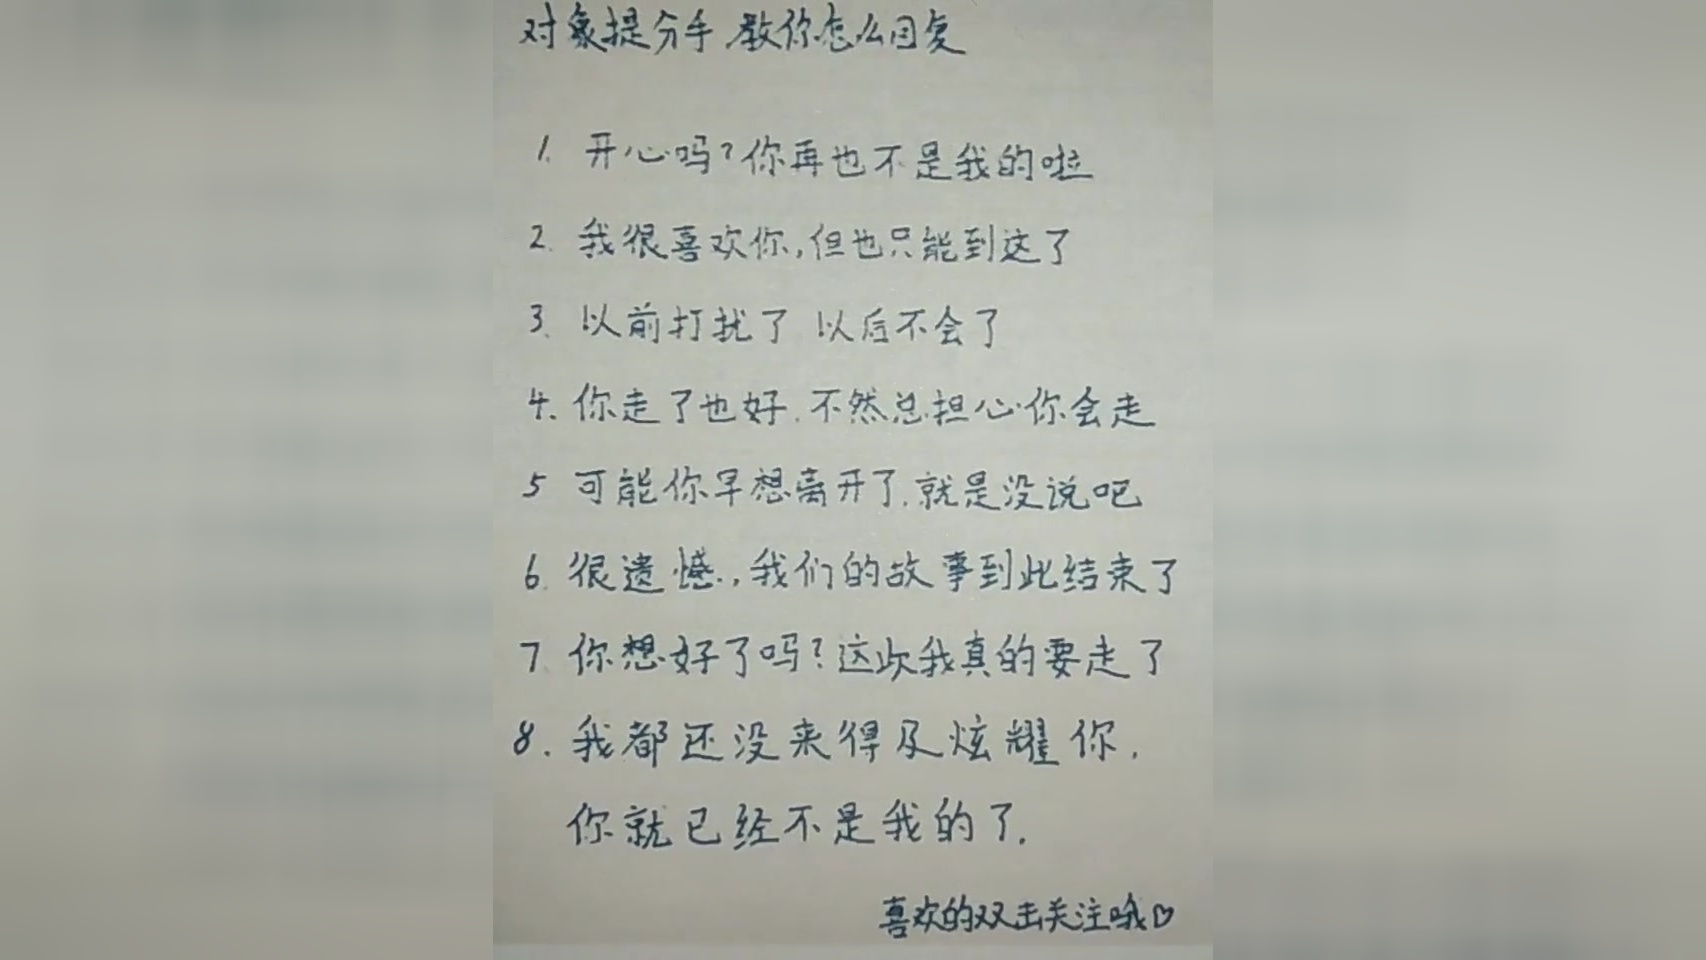 对象提分手 教你怎么回复
1. 开心吗?你再也不是我的啦
2. 我很喜欢你,但也只能到这了
3. 以前打扰了 以后不会了
4. 你走了也好.不然总担心你会走
5 可能你早想离开了.就是没说吧
6. 很遗憾.,我们的故事到此结束了
7. 你想好了吗?这次我真的要走了
8. 我都还没来得及炫耀你.
你就已经不是我的了.
喜欢的双击关注哦♡